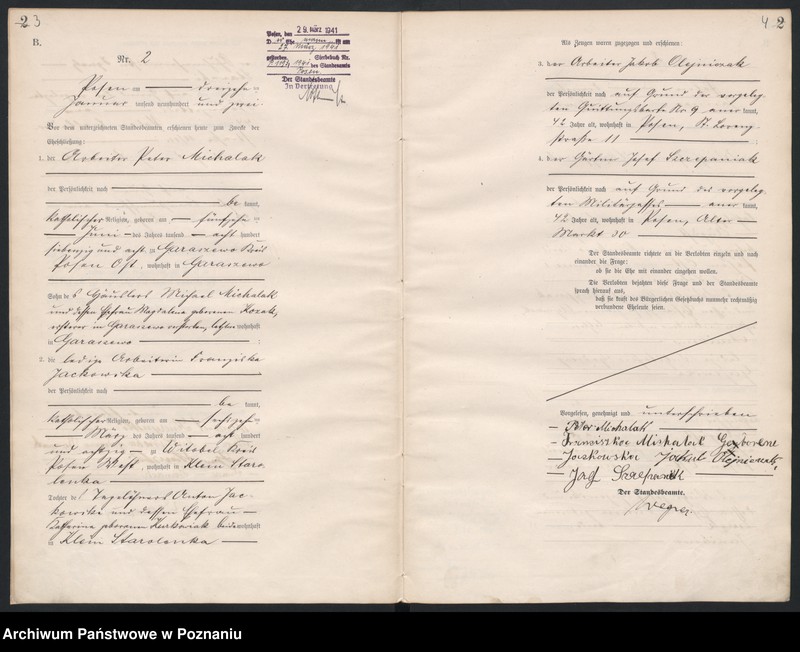 2 3
B.
Nr. 2
Posen, den 29. März 1941
27. März 1941
gestorben. Sterbebuch Nr.
des Standesamts
Posen
Der Standesbeamte
In Vertretung
Posen am dreizehn-
Januar tausend neunhundert und zwei.
Vor dem unterzeichneten Standesbeamten erschienen heute zum Zwecke der
Eheschließung:
1. der Arbeiter Peter Michalak
der Persönlichkeit nach
be kannt,
katholischer Religion, geboren am fünfzehn-
Juni des Jahres tausend acht hundert
siebenzig und acht zu Garaszewo Kreis
Posen Ost, wohnhaft in Garaszewo
Sohn des Häuslers Michael Michalak
und dessen Ehefrau Magdalena geborenen Kozak,
ersterer in Garaszewo verstorben, letztere wohnhaft
in Garaszewo :
2. die ledige Arbeiterin Franziska
Jackowska
der Persönlichkeit nach
be kannt,
katholischer Religion, geboren am sechszehn-
März des Jahres tausend acht hundert
und achtzig zu Witobel Kreis
Posen West, wohnhaft in Klein Staro-
lenka
Tochter des Tagelöhners Anton Jac-
kowski und dessen Ehefrau
Katharina geborenen Kurkowiak beide wohnhaft
in Klein Starolenka
4 2
Als Zeugen waren zugezogen und erschienen:
3. der Arbeiter Jakob Olejniczak
der Persönlichkeit nach auf Grund der vorgeleg-
ten Quittungskarte Nr 9 aner kannt,
42 Jahre alt, wohnhaft in Posen, St. Lorenz-
straße 11 ;
4. der Gärtner Josef Szczepaniak
der Persönlichkeit nach auf Grund des vorgeleg-
ten Militärpasses aner kannt,
42 Jahre alt, wohnhaft in Posen, Alter
Markt 30
Der Standesbeamte richtete an die Verlobten einzeln und nach
einander die Frage:
ob sie die Ehe mit einander eingehen wollen.
Die Verlobten bejahten diese Frage und der Standesbeamte
sprach hierauf aus,
daß sie kraft des Bürgerlichen Gesetzbuchs nunmehr rechtmäßig
verbundene Eheleute seien.
Vorgelesen, genehmigt und unterschrieben
Peter Michalak
Franziska Michalak Geborene
Jackowska Jakub Olejniczak,
Josef Szczepaniak
Der Standesbeamte.
Archiwum Państwowe w Poznaniu